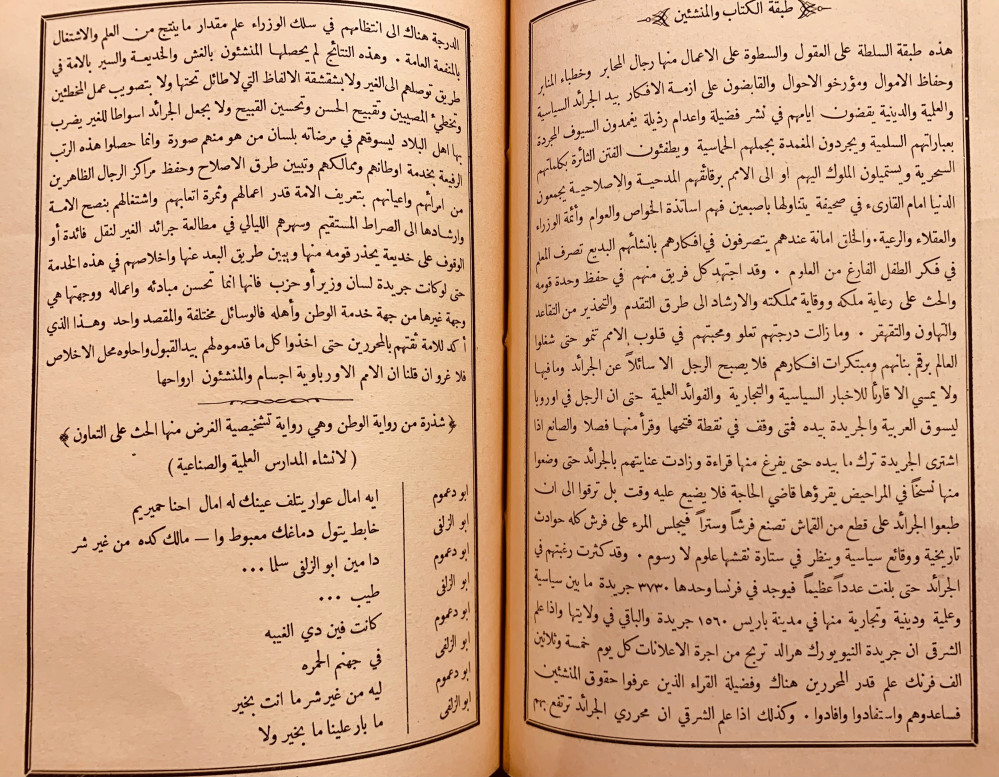 طبقة الكتاب والمنشئين
هذه طبقة السلطة على العقول والسطوة على الاعمال منها رجال المحابر وخطباء المنابر
وحفاظ الاموال ومؤرخو الاحوال والقابضون على ازمة الافكار بيد الجرائد السياسية
والعلمية والدينية يقضون ايامهم في نشر فضيلة واعدام رذيلة يغمدون السيوف المجردة
بعباراتهم السلمية ويجردون المغمدة بجملهم الحماسية ويطفئون الفتن الثائرة بكلماتهم
السحرية ويستميلون الملوك اليهم او الى الامم برقائقهم المدحية والاصلاحية يجمعون
الدنيا امام القارىء في صحيفة يتناولها باصبعين فهم اساتذة الخواص والعوام وأئمة الوزراء
والعقلاء والرعية. والخلق امانة عندهم يتصرفون في افكارهم بانشائهم البديع تصرف المعلم
في فكر الطفل الفارغ من العلوم . وقد اجتهد كل فريق منهم في حفظ وحدة قومه
والحث على رعاية ملكه ووقاية مملكته والارشاد الى طرق التقدم والتحذير من التقاعد
والتهاون والتقهقر . وما زالت درجتهم تعلو ومحبتهم في قلوب الامم تنمو حتى شغلوا
العالم برقم بنانهم ومبتكرات افكارهم فلا يصبح الرجل الا سائلاً عن الجرائد ومافيها
ولا يمسي الا قارئاً للاخبار السياسية والتجارية والفوائد العلمية حتى ان الرجل في اوروبا
ليسوق العربية والجريدة بيده فمتى وقف في نقطة فتحها وقرأ منها فصلا والصانع اذا
اشترى الجريدة ترك ما بيده حتى يفرغ منها قراءة وزادت عنايتهم بالجرائد حتى وضعوا
منها نسخاً في المراحيض يقرؤها قاضي الحاجة فلا يضيع عليه وقت بل ترقوا الى ان
طبعوا الجرائد على قطع من القماش تصنع فرشاً وستراً فيجلس المرء على فرش كله حوادث
تاريخية ووقائع سياسية وينظر في ستارة نقشها علوم لا رسوم . وقد كثرت رغبتهم في
الجرائد حتى بلغت عدداً عظيماً فيوجد في فرنسا وحدها ٣٧٣٠ جريدة ما بين سياسية
وعلمية ودينية وتجارية منها في مدينة باريس ١٥٦٠ جريدة والباقي في ولايتها واذا علم
الشرقي ان جريدة النيويورك هرالد تربح من اجرة الاعلانات كل يوم خمسة وثلاثين
الف فرنك علم قدر المحررين هناك وفضيلة القراء الذين عرفوا حقوق المنشئين
فساعدوهم واستفادوا وافادوا . وكذلك اذا علم الشرقي ان محرري الجرائد ترتفع بهم
الدرجة هناك الى انتظامهم في سلك الوزراء علم مقدار ما ينتج من العلم والاشتغال
بالمنفعة العامة . وهذه النتائج لم يحصلها المنشئون بالغش والخديعة والسير بالامة في
طريق توصلهم الى الغير ولا بشقشقة الالفاظ التي لا طائل تحتها ولا بتصويب عمل المخطئين
وتخطئ المصيبين وتقبيح الحسن وتحسين القبيح ولا يجعل الجرائد اسواطا للغير يضرب
بها اهل البلاد ليسوقهم في مرضاته بلسان من هو منهم صورة وانما حصلوا هذه الرتب
الرفيعة بخدمة اوطانهم وممالكهم وتبيين طرق الاصلاح وحفظ مراكز الرجال الظاهرين
من امرائهم واعيانهم بتعريف الامة قدر اعمالهم وثمرة اتعابهم واشتغالهم بنصح الامة
وارشادها الى الصراط المستقيم وسهرهم الليالي في مطالعة جرائد الغير لنقل فائدة أو
الوقوف على خديعة يحذر قومه منها ويبين طريق البعد عنها واخلاصهم في هذه الخدمة
حتى لو كانت جريدة لسان وزير أو حزب فانها انما تحسن مبادئه واعماله ووجهتها هي
وجهة غيرها من جهة خدمة الوطن وأهله فالوسائل مختلفة والمقصد واحد وهذا الذي
أكد للامة ثقتهم بالمحررين حتى اخذوا كل ما قدموه لهم بيد القبول واحلوه محل الاخلاص
فلا غرو ان قلنا ان الامم الاورباوية اجسام والمنشئون ارواحها
﴿ شذرة من رواية الوطن وهي رواية تشخيصية الغرض منها الحث على التعاون ﴾
( لانشاء المدارس العلمية والصناعية )
ابو دعموم ايه امال عوار يتلف عينك له امال احنا حميريم
ابو الزلفى خابط يتول دماغك معبوط وا — مالك كده من غير شر
ابو دعموم دا مين ابو الزلفى سلما ...
ابو الزلفى طيب ...
ابو دعموم كانت فين دي الغيبه
ابو الزلفى في جهنم الحمره
ابو دعموم ليه من غير شر ما انت بخير
ابو الزلفى ما بار علينا ما بخير ولا